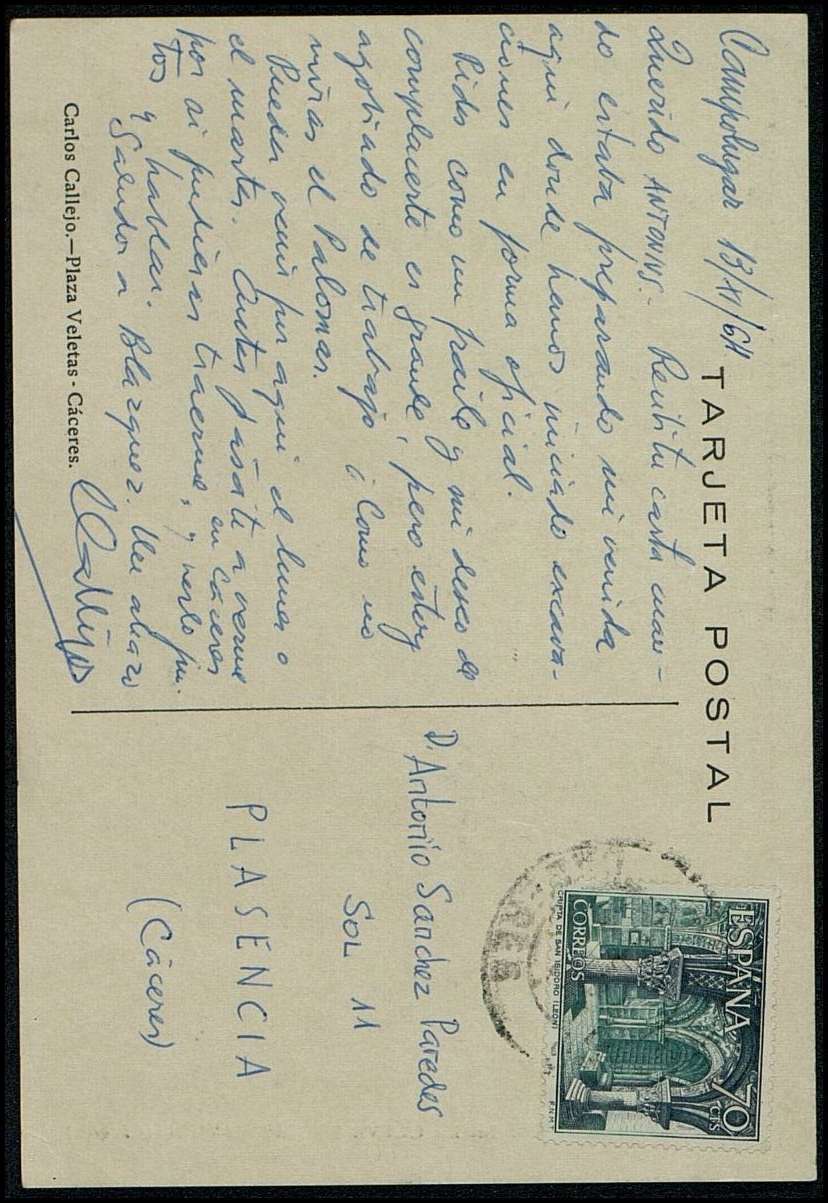 TARJETA POSTAL
Campolugar 13/XI/64
Querido ANTONIUS.- Recibí tu carta cuan-
do estaba preparando mi venida
aquí donde hemos iniciado excava-
ciones en forma oficial.
Pides como un fraile y mi deseo de
complacerte es grande, pero estoy
agobiado de trabajo ¿Como no
miras el Palomar.
Puedes venir por aquí el lunes o
el martes. Antes pásate a verme
en Cáceres
por si pudieras traerme, y verlo jun-
tos y hablar.
Saludos a Blázquez. Un abrazo
CCallejo
Carlos Callejo.—Plaza Veletas - Cáceres.
D. Antonio Sanchez Paredes
SOL 11
PLASENCIA
(Cáceres)
ESPAÑA 70 CTS
CORREOS
CRIPTA DE SAN ISIDORO (LEON)
F.N.M.T.